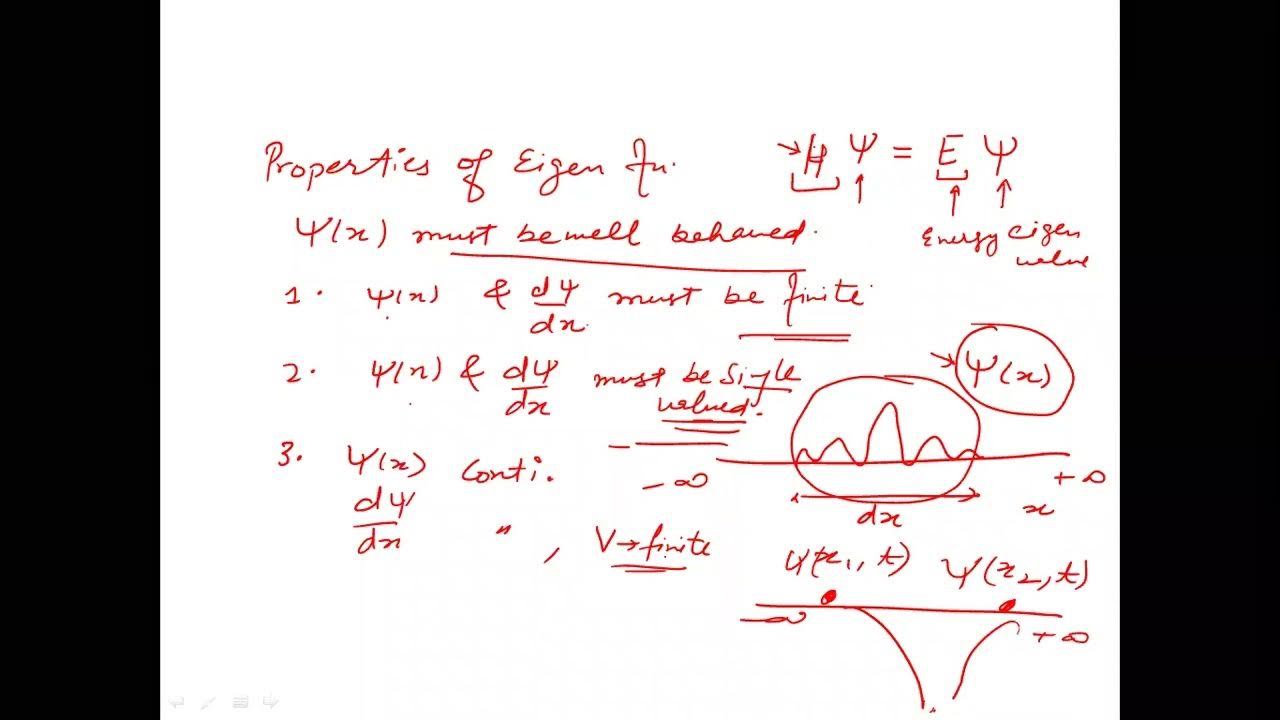 Properties of Eigen fn.
H Ψ = E Ψ
Energy eigen
value
Ψ(x) must be well behaved.
1. Ψ(x) & dΨ/dx must be finite
2. Ψ(x) & dΨ/dx must be single
valued.
Ψ(x)
3. Ψ(x) conti.
dΨ/dx " , V→finite
-∞
+∞
dx
x
Ψ(x1, t)
Ψ(x2, t)
-∞
+∞